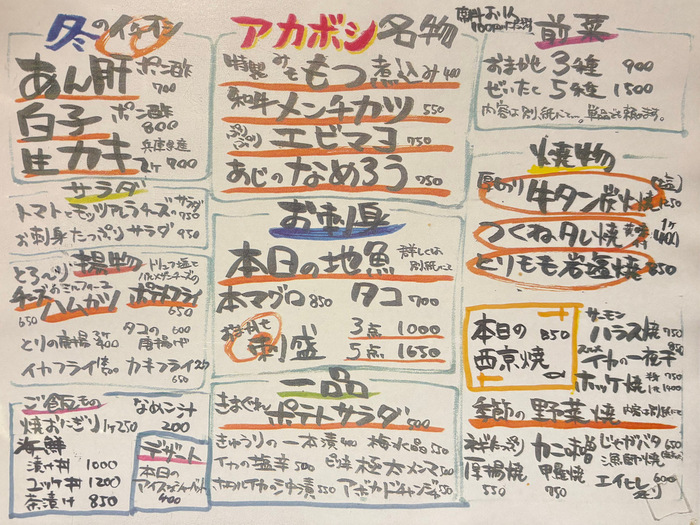 冬のイチオシ
あん肝 ポン酢 700
白子 ポン酢 800
生カキ 兵庫県産 2ケ 700
サラダ
トマトとモッツァレラチーズのサラダ 750
お刺身たっぷりサラダ 950
揚物
とろ〜り
チーズのミルフィーユ
ハムカツ 650
トリュフ塩と
ポテトフライ 650
とりの唐揚 3ケ 400
タコの唐揚げ 600
イカフライ 500
カキフライ 2ケ 650
ご飯もの
焼おにぎり 1ケ 250
海鮮
漬け丼 1000
ユッケ丼 1200
茶漬け 850
なめこ汁 200
デザート
本日の
アイスorシャーベット
400
アカボシ名物
特製 みそもつ煮込み 400
和牛メンチカツ 550
ぷりぷりエビマヨ 750
あじのなめろう 750
お刺身
本日の地魚 詳しくは別紙にて
本マグロ 850 タコ 700
おまかせ刺盛 3点 1000
5点 1650
一品
きまぐれポテトサラダ 500
きゅうりの一本漬 400 梅水晶 550
イカの塩辛 500 ピリ辛 極太メンマ 500
ホタルイカの沖漬 550 アボカドチャンジャ 550
前菜
おまかせ 3種 900
ぜいたく 5種 1500
焼物
厚切り 牛タン炭火焼 1250
つくねタレ焼 1ケ 400
とりもも岩塩焼 850
本日の西京焼 850
サーモンハラス焼 750
イカの一夜干 850
ホッケ焼 半身 750 1本 1400
季節の野菜焼
ネギたっぷり厚揚焼 550
カニ味噌甲羅焼 750
じゃがバタ 650
漁師焼
エイヒレ炙り 600